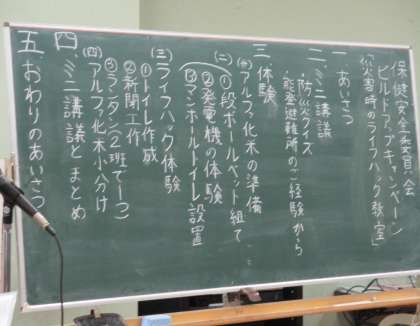 保健安全委員会
ビルドアップキャンペーン
「災害時のライフハック教室」
一 あいさつ
二 ミニ講議
・防災クイズ
・能登避難所のご経験から
三 体験
(一) アルファ化米の準備
(二) ①段ボールベッド組立て
②発電機の体験
③マンホールトイレ設置
(三) ライフハック体験
①トイレ作成
②新聞工作
③ランタン(2班で一つ)
(四) アルファ化米小分け
四 ミニ講議とまとめ
五 おわりのあいさつ